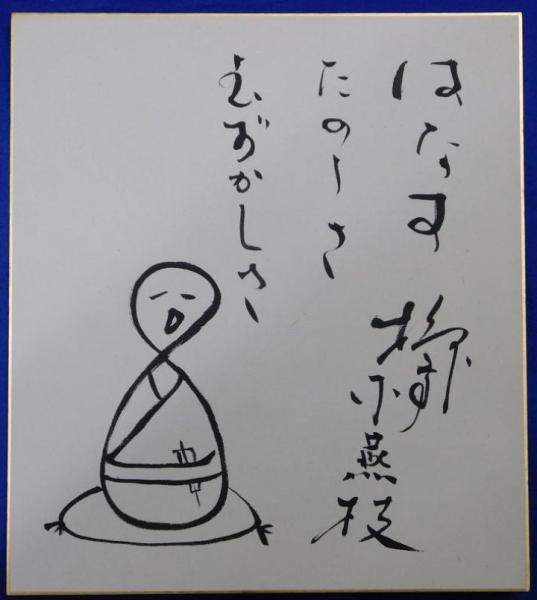 はなす
たのしさ
むずかしさ
柳家小燕枝